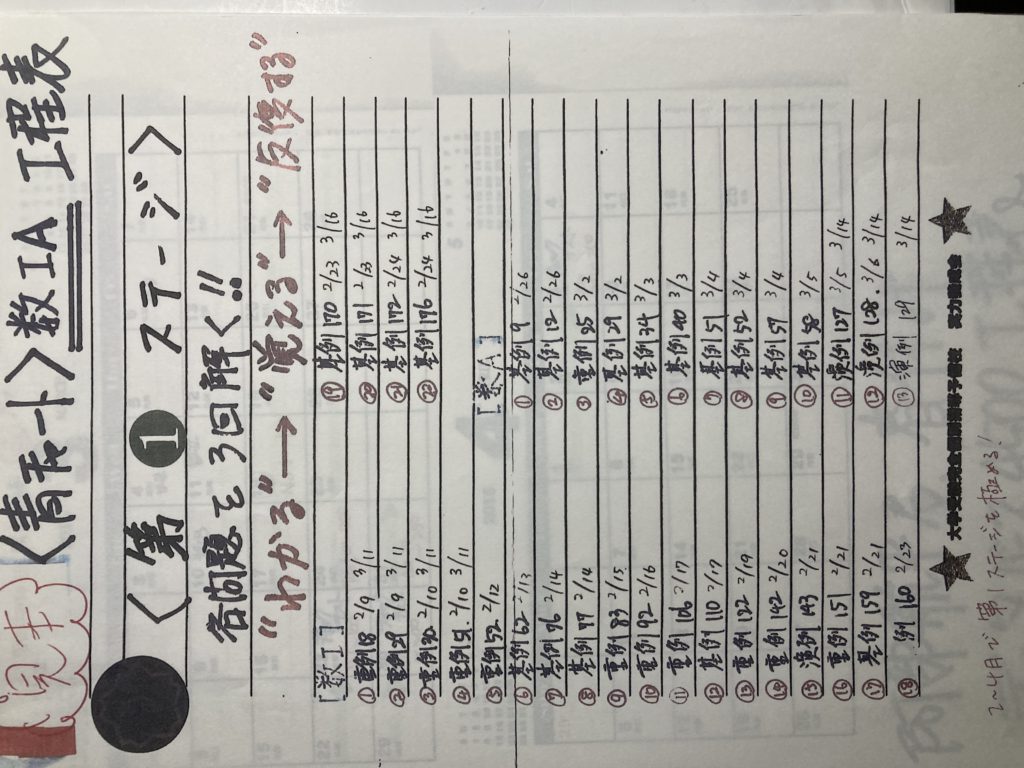 見本
〈青チャート〉数IA 工程表
〈第 1 ステージ〉
各問題を3回解く!!
"わかる"→"覚える"→"反復する"
[数I]
① 重例 18 2/9 3/11
② 重例 29 2/9 3/11
③ 重例 30 2/10 3/11
④ 重例 51 2/10 3/11
⑤ 重例 52 2/12
⑥ 基例 62 2/13
⑦ 基例 76 2/14
⑧ 基例 77 2/14
⑨ 重例 83 2/15
⑩ 重例 92 2/16
⑪ 重例 106 2/17
⑫ 基例 110 2/19
⑬ 重例 132 2/19
⑭ 重例 142 2/20
⑮ 演例 143 2/21
⑯ 重例 151 2/21
⑰ 基例 159 2/21
⑱ 例 160 2/23
⑲ 基例 170 2/23 3/16
⑳ 基例 171 2/23 3/16
㉑ 基例 172 2/24 3/16
㉒ 基例 176 2/24 3/16
[数A]
① 基例 9 2/26
② 基例 12 2/26
③ 重例 25 3/2
④ 基例 29 3/2
⑤ 基例 34 3/3
⑥ 基例 40 3/3
⑦ 基例 51 3/4
⑧ 基例 52 3/4
⑨ 基例 57 3/4
⑩ 基例 58 3/5
⑪ 演例 127 3/5 3/14
⑫ 演例 128 3/6 3/14
⑬ 演例 129 3/14
2~4月で第1ステージを極める!